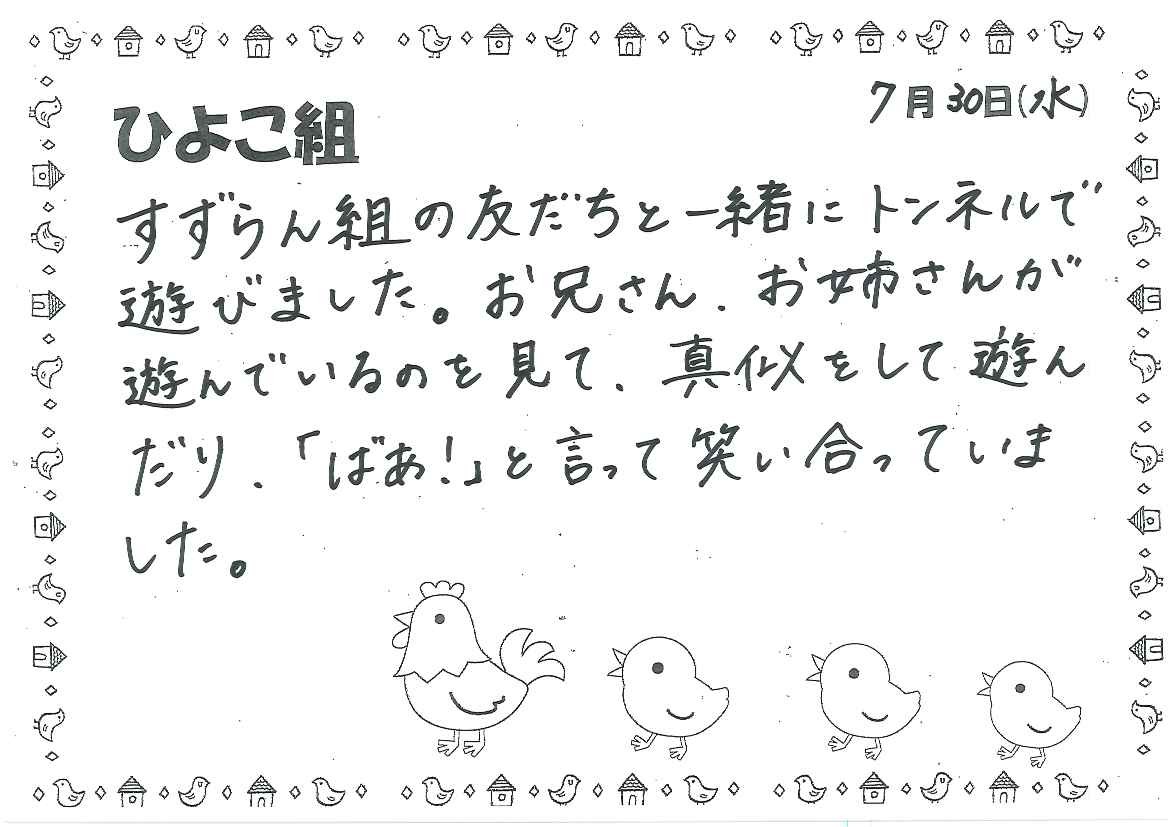 7月30日(水)
ひよこ組
すずらん組の友だちと一緒にトンネルで
遊びました。お兄さん、お姉さんが
遊んでいるのを見て、真似をして遊ん
だり、「ばあ!」と言って笑い合っていま
した。